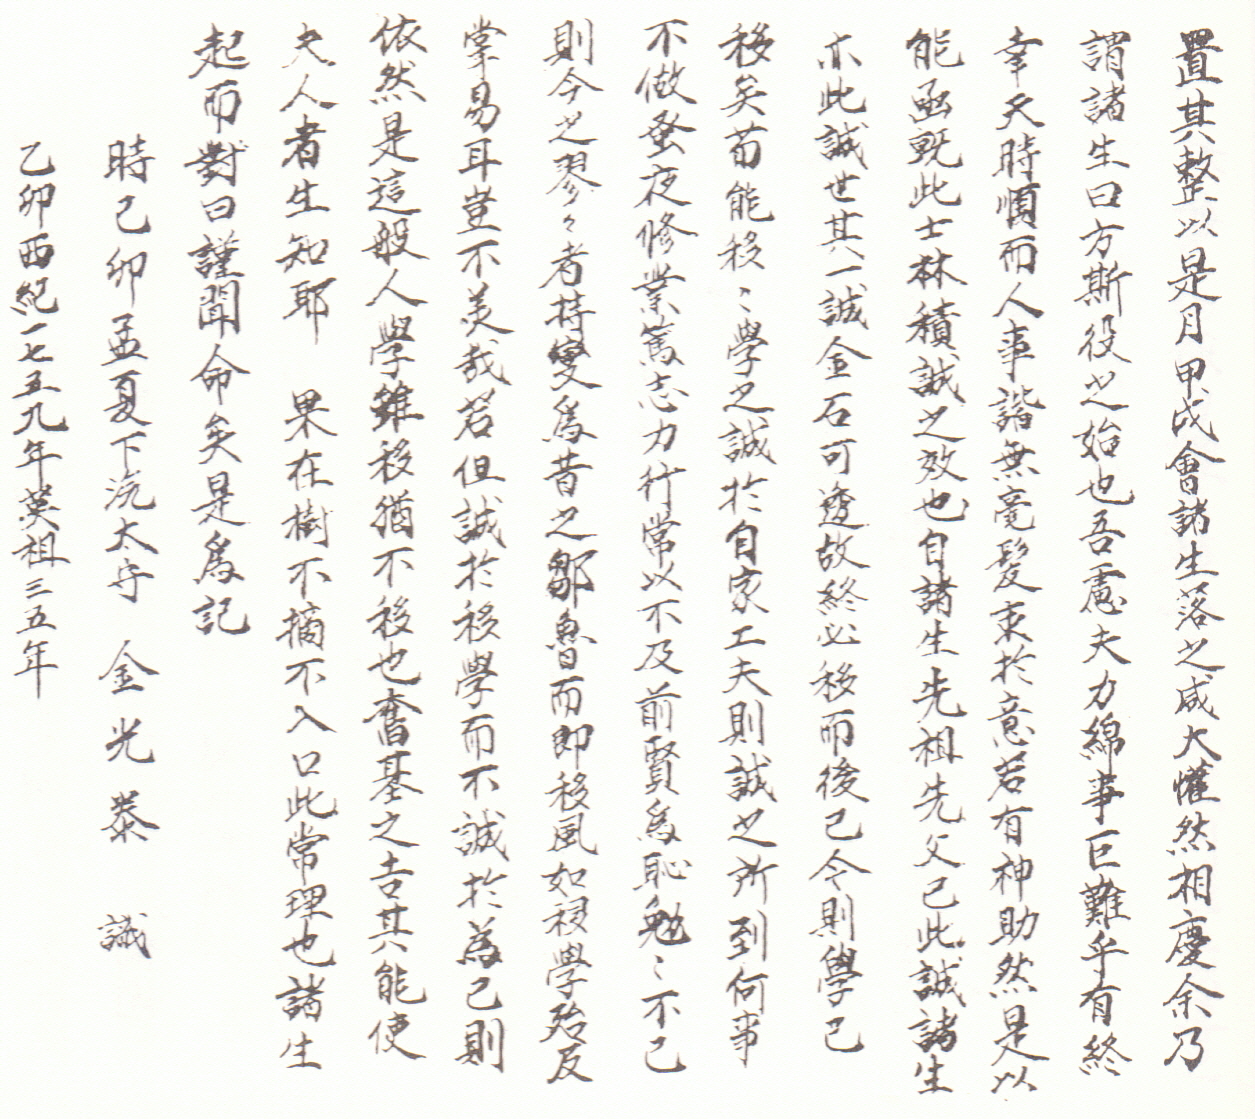 置其整以是月甲戌會諸生落之咸大懽然相慶余乃
謂諸生曰方斯役之始也吾慮夫力綿事巨難乎有終
幸天時順而人事諧無毫髮柬於意若有神助然是以
能亟旣此士林積誠之效也自諸生先祖先父已此誠諸生
亦此誠世其一誠金石可透故終必移而後已今則學已
移矣苟能移〻學之誠於自家工夫則誠之所到何事
不做蚤夜修業篤志力行常以不及前賢爲恥勉〻不已
則今之翏〻者持變爲昔之鄒魯而即移風如移學殆反
掌易耳豈不美哉若但誠於移學而不誠於為己則
依然是這般人學雖移猶不移也奮基之吉其能使
夫人者生知耶 果在樹不摘不入口此常理也諸生
起而對曰謹聞命矣是爲記
時己卯孟夏下浣太守 金光泰 識
乙卯西紀一七五九年英祖三五年